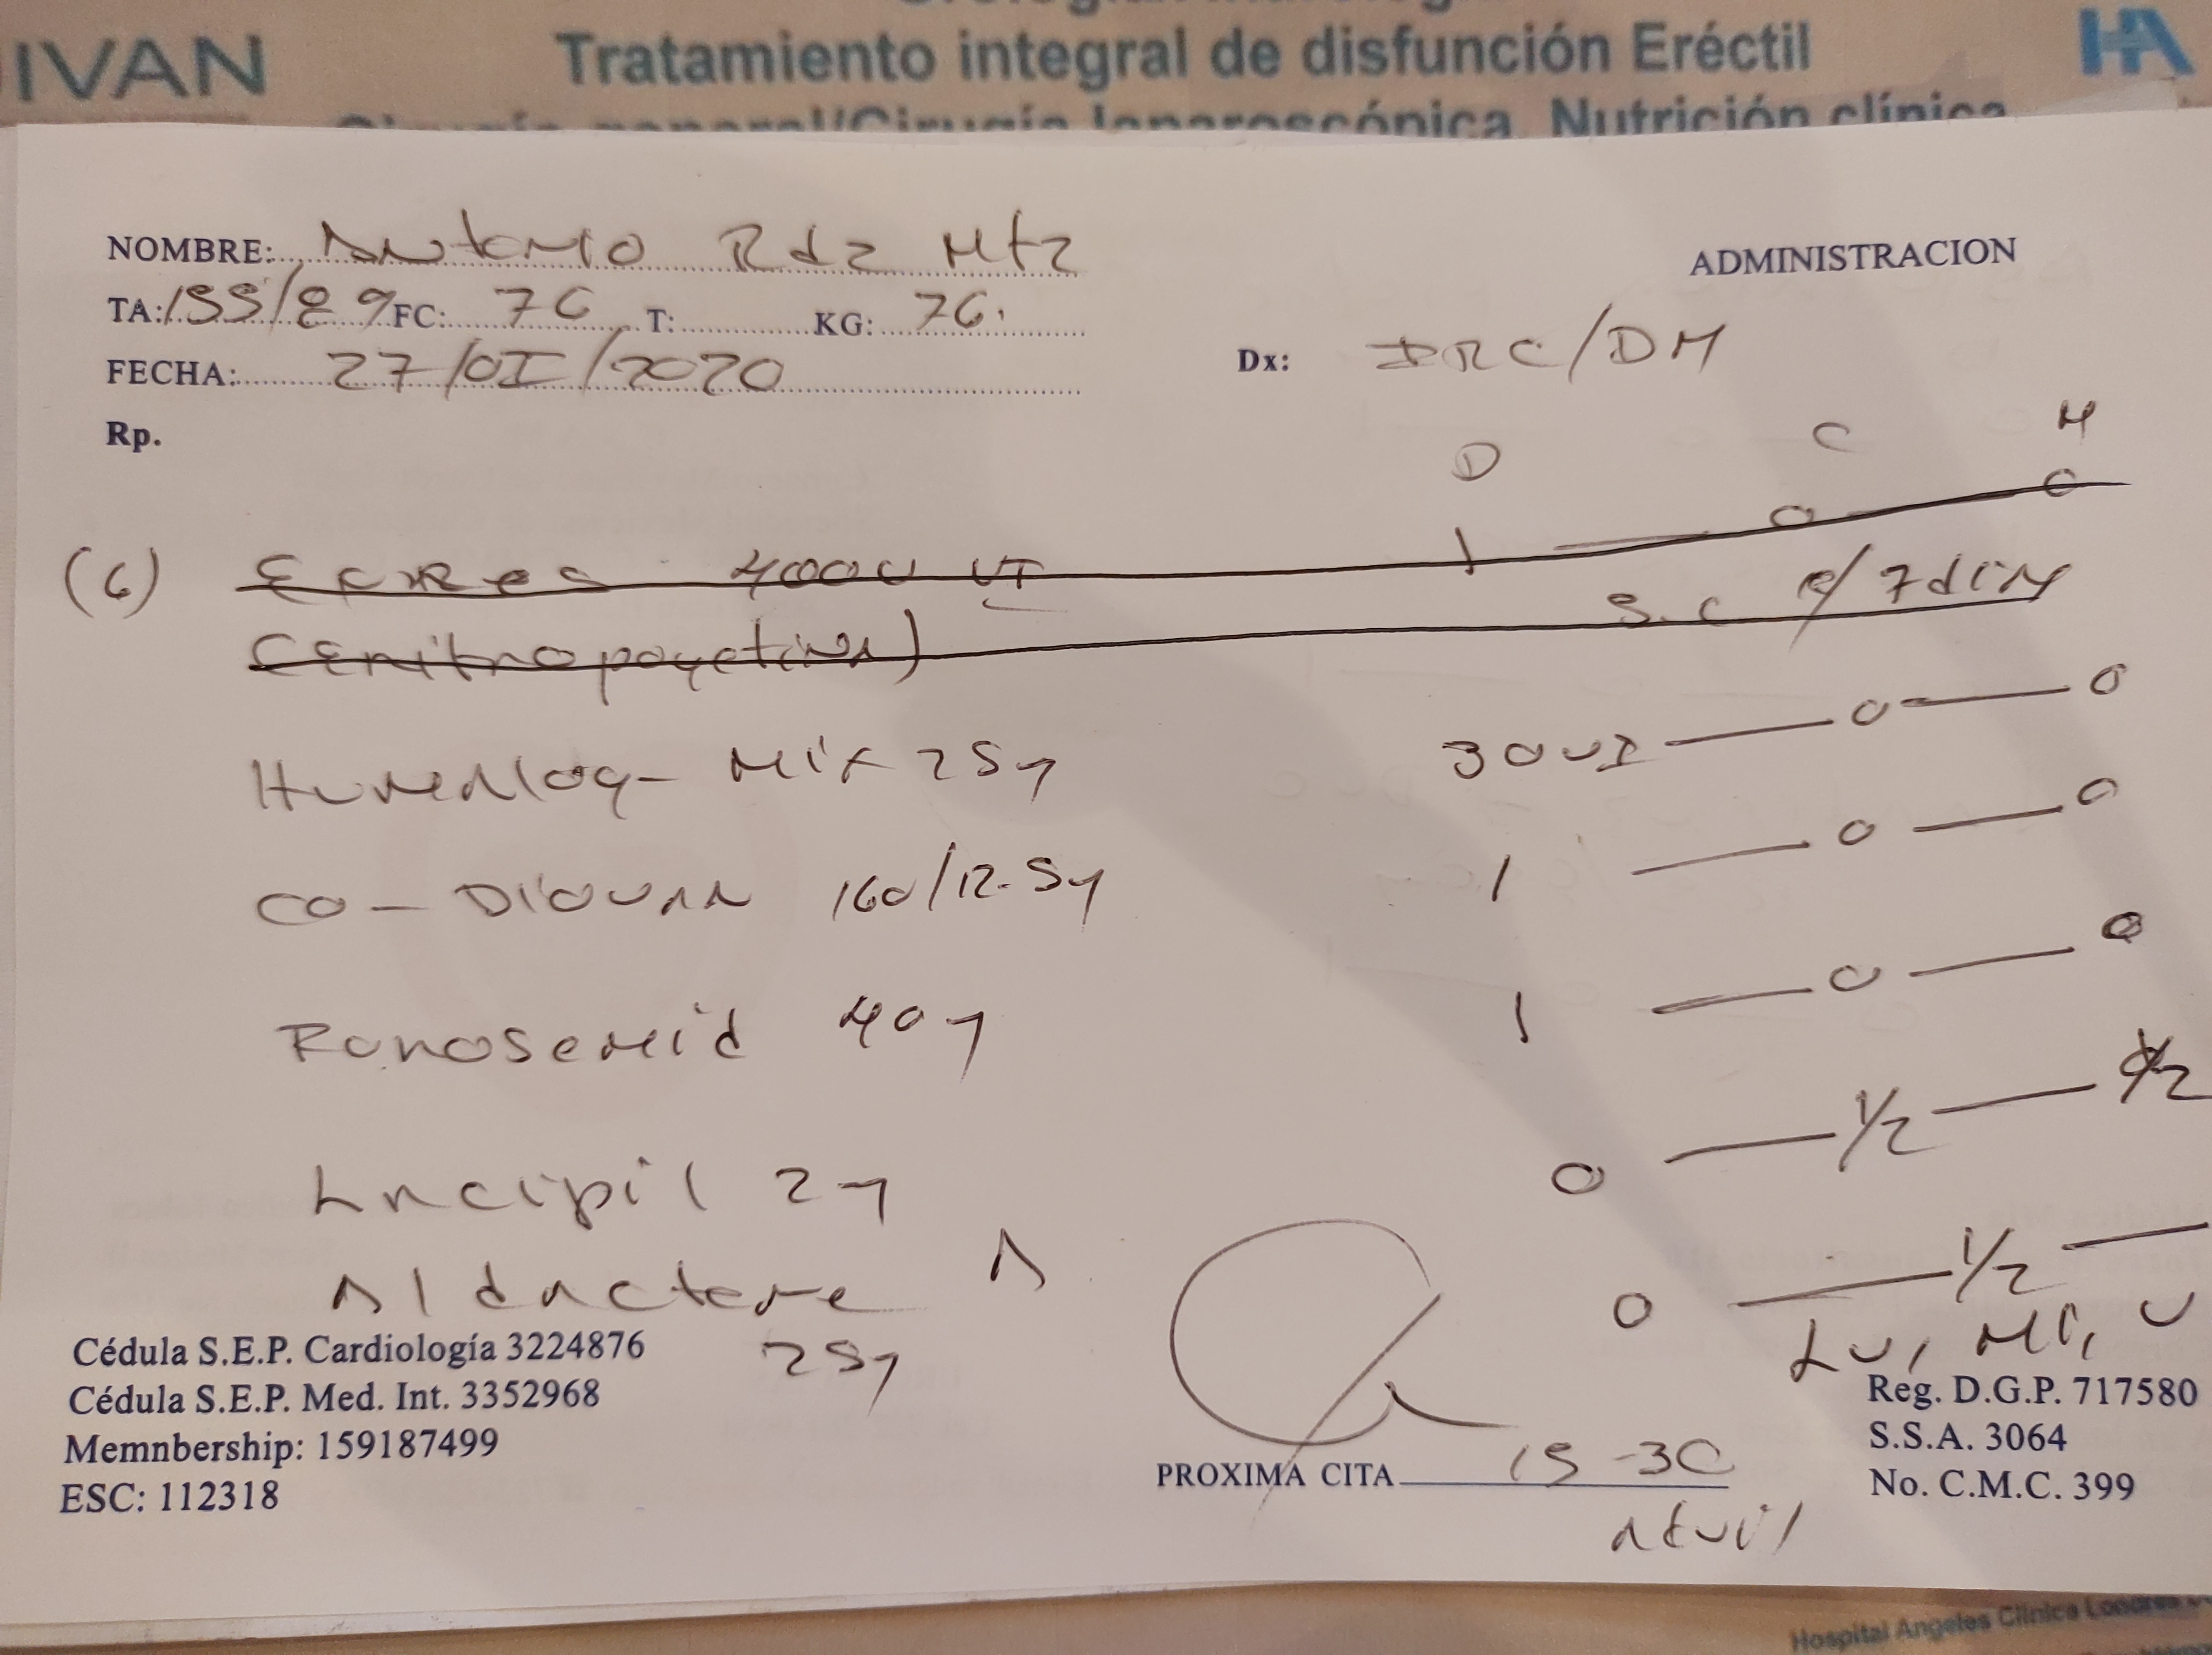 IVAN
Tratamiento integral de disfunción Eréctil
HA
Cirugía general/Cirugía laparoscópica, Nutrición clínica
NOMBRE: Antonio Rdz Mtz
ADMINISTRACION
TA: 155/89 FC: 76 T: KG: 76.
FECHA: 27/01/2020
Dx: IRC/DM
Rp.
D C
(6) 4000 UI 1 — 0 — 0
(Eritropoyetina) S.C c/7 dias
Humalog Mix 25 30 UI — 0 — 0
CO-Diovan 160/12.5 1 — 0 — 0
40 1 — 0 — 0
Lacipil 2 0 — 1/2 —
Aldactone A 0 — 1/2 —
25
Lu, Mi, V
Cédula S.E.P. Cardiología 3224876
Cédula S.E.P. Med. Int. 3352968
Memnbership: 159187499
ESC: 112318
PROXIMA CITA 15-30
Abril
Reg. D.G.P. 717580
S.S.A. 3064
No. C.M.C. 399
Hospital Angeles Clínica Londres